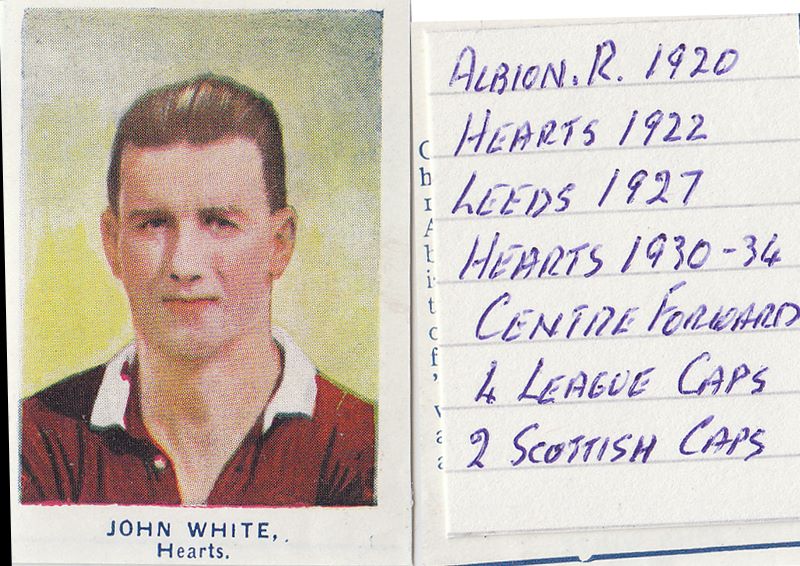 JOHN WHITE,
Hearts.
ALBION. R. 1920
HEARTS 1922
LEEDS 1927
HEARTS 1930-34
CENTRE FORWARD
4 LEAGUE CAPS
2 SCOTTISH CAPS